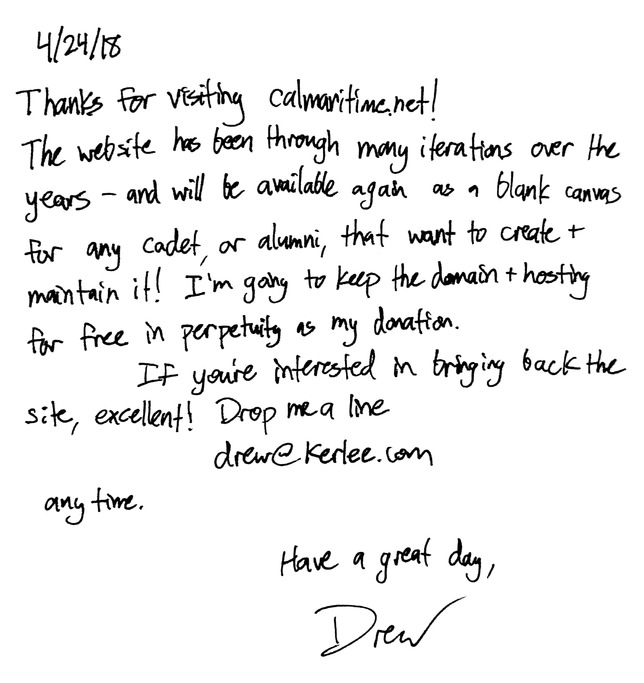 4/24/18
Thanks for visiting calmaritime.net!
The website has been through many iterations over the
years - and will be available again as a blank canvas
for any cadet, or alumni, that want to create +
maintain it! I'm going to keep the domain + hosting
for free in perpetuity as my donation.
If you're interested in bringing back the
site, excellent! Drop me a line
drew@kerlee.com
any time.
Have a great day,
Drew